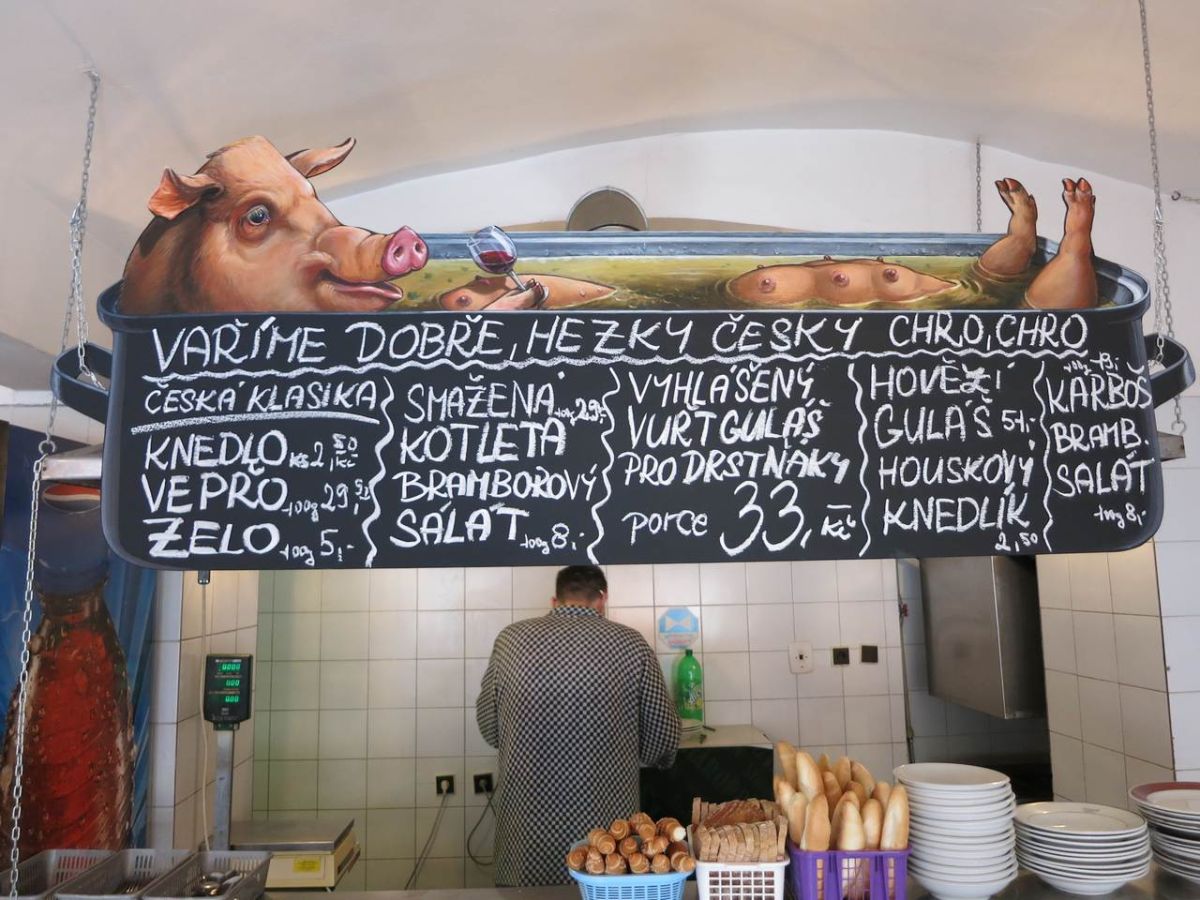 VAŘÍME DOBŘE, HEZKY ČESKY CHRO, CHRO
ČESKÁ KLASIKA
KNEDLO KS 2,50 Kč
VEPŘO 100g 29,-
ZELO 100g 5,-
SMAŽENÁ 100g 29,-
KOTLETA
BRAMBOROVÝ
SALÁT 100g 8,-
VYHLÁŠENÝ
VUŘTGULÁŠ
PRO DRSTŇÁKY
porce 33,- Kč
HOVĚZÍ
GULÁŠ 54,-
HOUSKOVÝ
KNEDLÍK
2,50
KARBOŠ
BRAMB.
SALÁT
100g 8,-